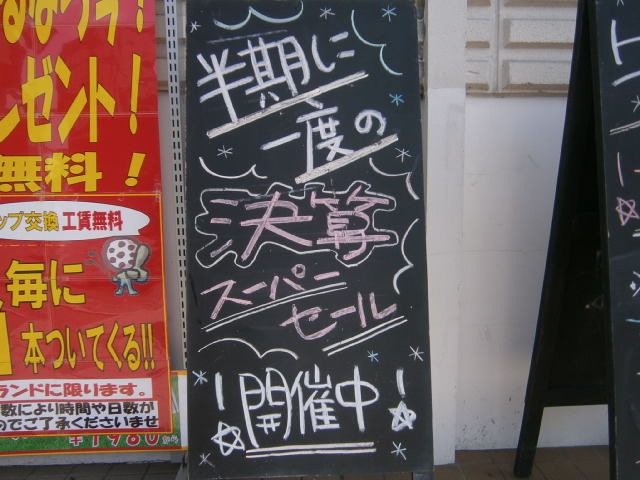 半期に
一度の
決算
スーパー
セール
!開催中!
ゼント!
無料!
ップ交換工賃無料
毎に
本ついてくる!!
ランドに限ります。
数により時間や日数が
のでご了承くださいませ
¥1980から